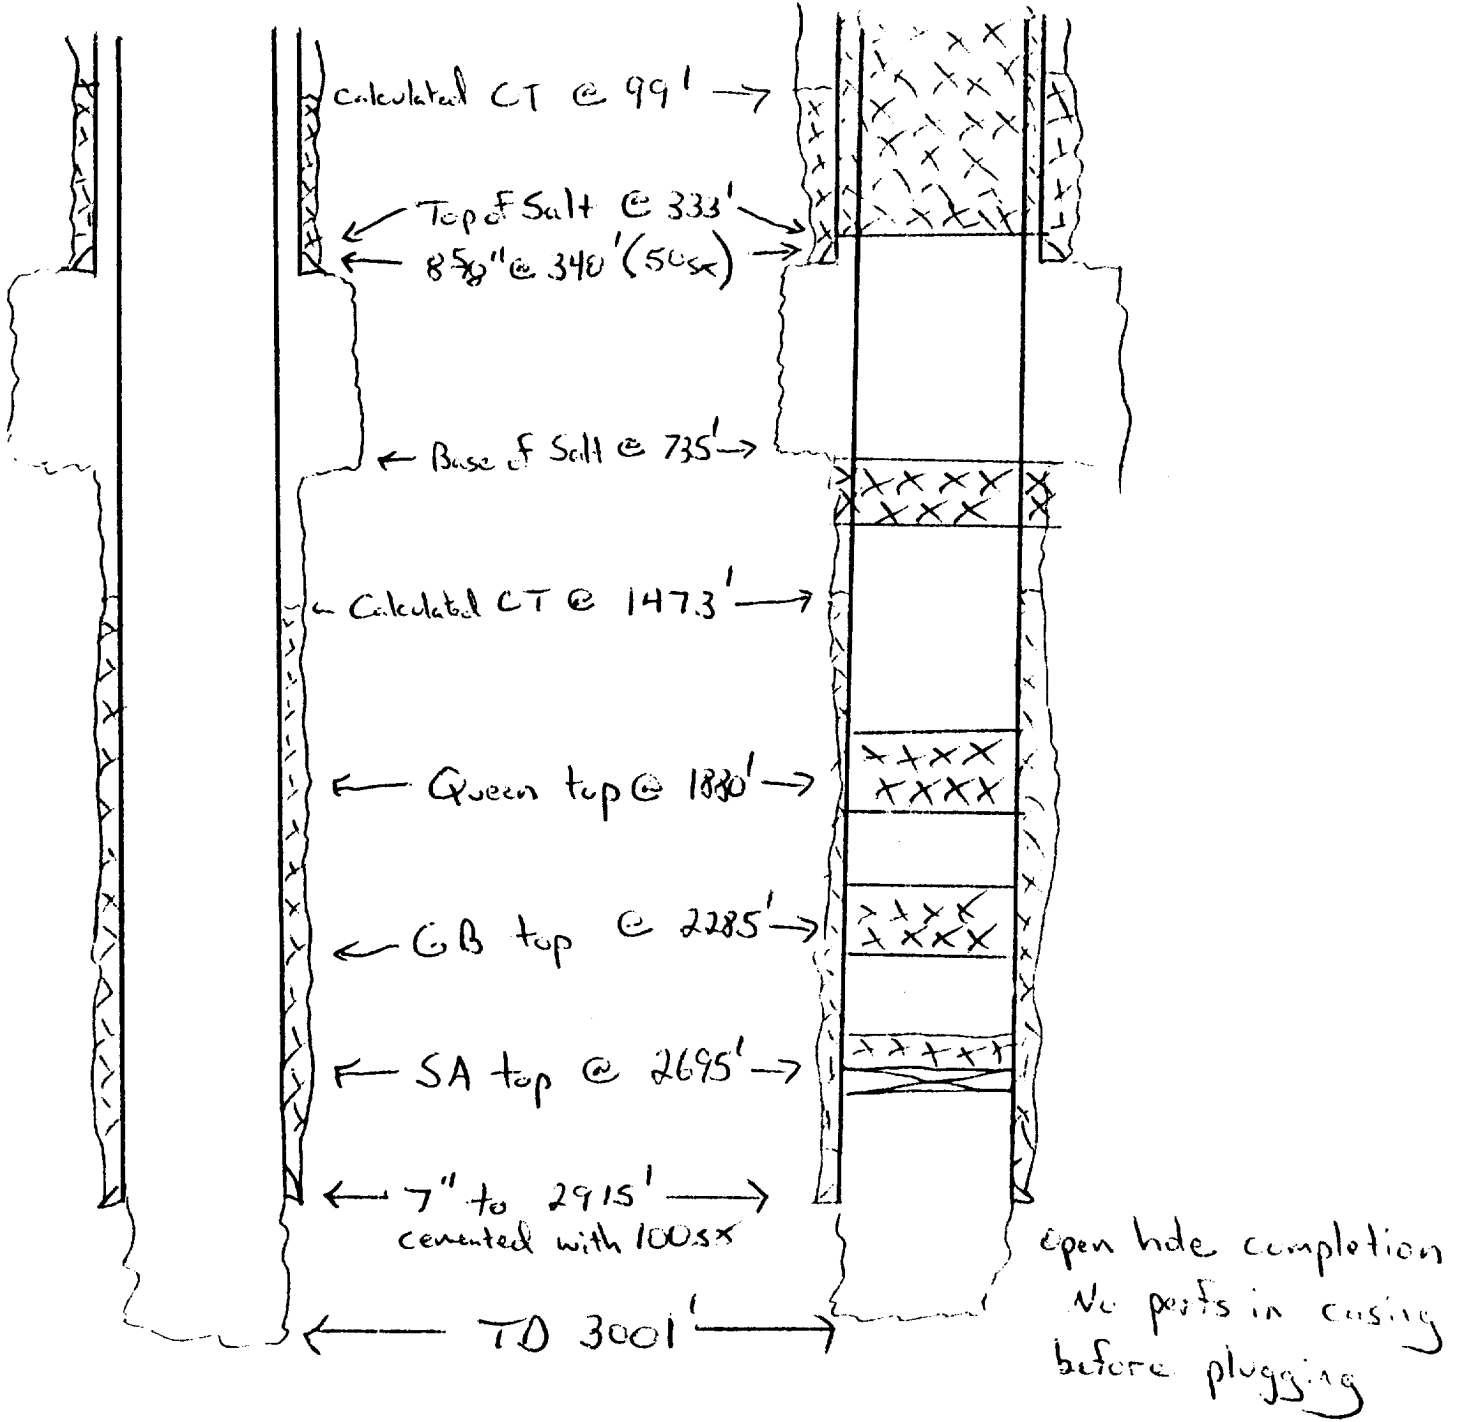 Calculated CT @ 99'
Top of Salt @ 333'
8 5/8" @ 340' (50sx)
Base of Salt @ 735'
Calculated CT @ 1473'
Queen top @ 1880'
GB top @ 2285'
SA top @ 2695'
7" to 2915'
cemented with 100sx
TD 3001'
open hole completion
No perfs in casing
before plugging